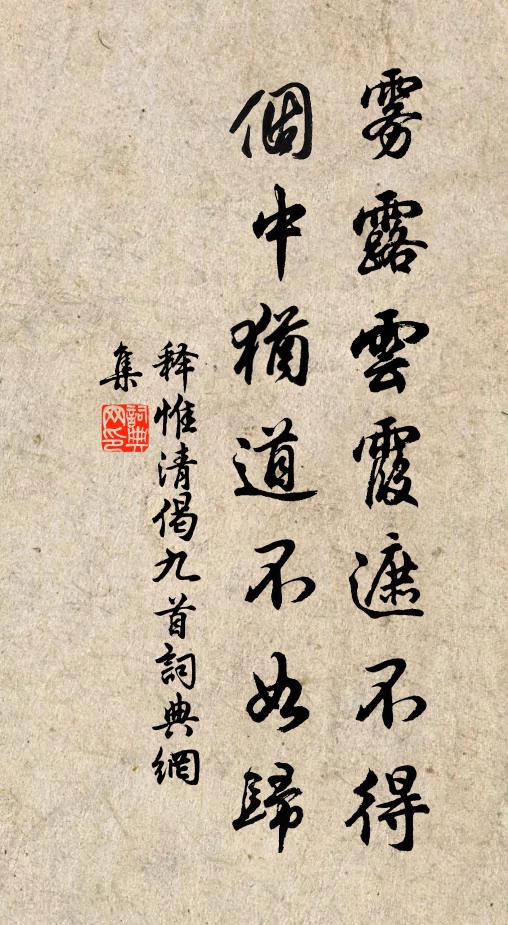 雾露雲霞遮不得
個中猶道不如歸
释惟清偈九首詞典網
集
詞典
网印